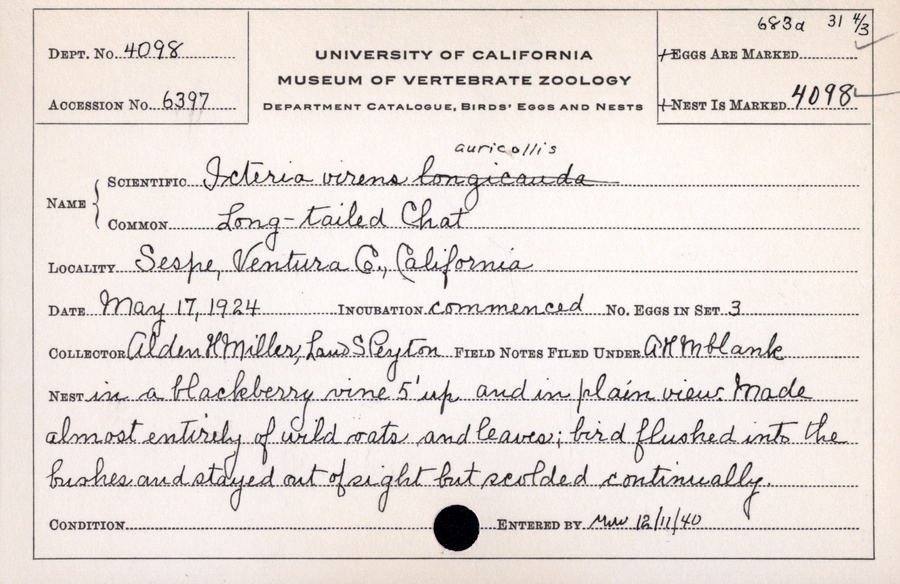 683a 31 4/3
DEPT. NO. 4098
UNIVERSITY OF CALIFORNIA
EGGS ARE MARKED
MUSEUM OF VERTEBRATE ZOOLOGY
ACCESSION NO. 6397
DEPARTMENT CATALOGUE, BIRDS' EGGS AND NESTS
NEST IS MARKED 4098
auricollis
NAME SCIENTIFIC Icteria virens longicauda
COMMON Long-tailed Chat
LOCALITY Sespe, Ventura Co., California
DATE May 17, 1924 INCUBATION commenced NO. EGGS IN SET 3
COLLECTOR Alden H Miller, S Peyton FIELD NOTES FILED UNDER AHM blank
NEST in a blackberry vine 5' up and in plain view. Made
almost entirely of wild oats and leaves; bird flushed into the
bushes and stayed out of sight but scolded continually.
CONDITION ENTERED BY 12/11/40